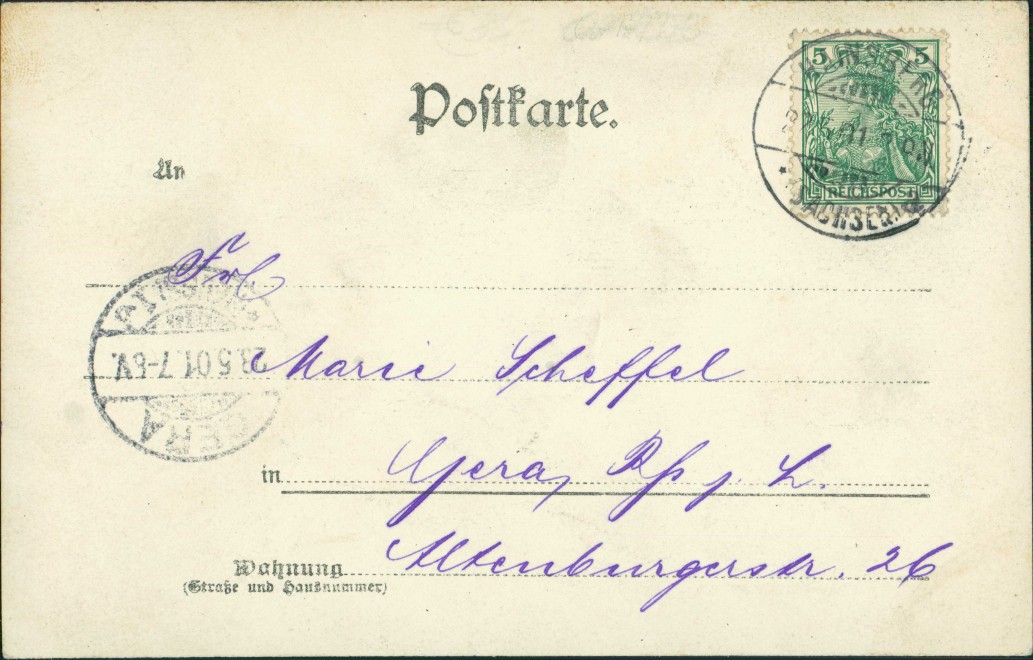 Postkarte.
5 5
REICHSPOST
SACHSEN
An
Frl
Marie Scheffel
in Gera, Rß j. L.
Altenburgerstr. 26
Wohnung
(Straße und Hausnummer)
GERA
23.5.01.7-8V.